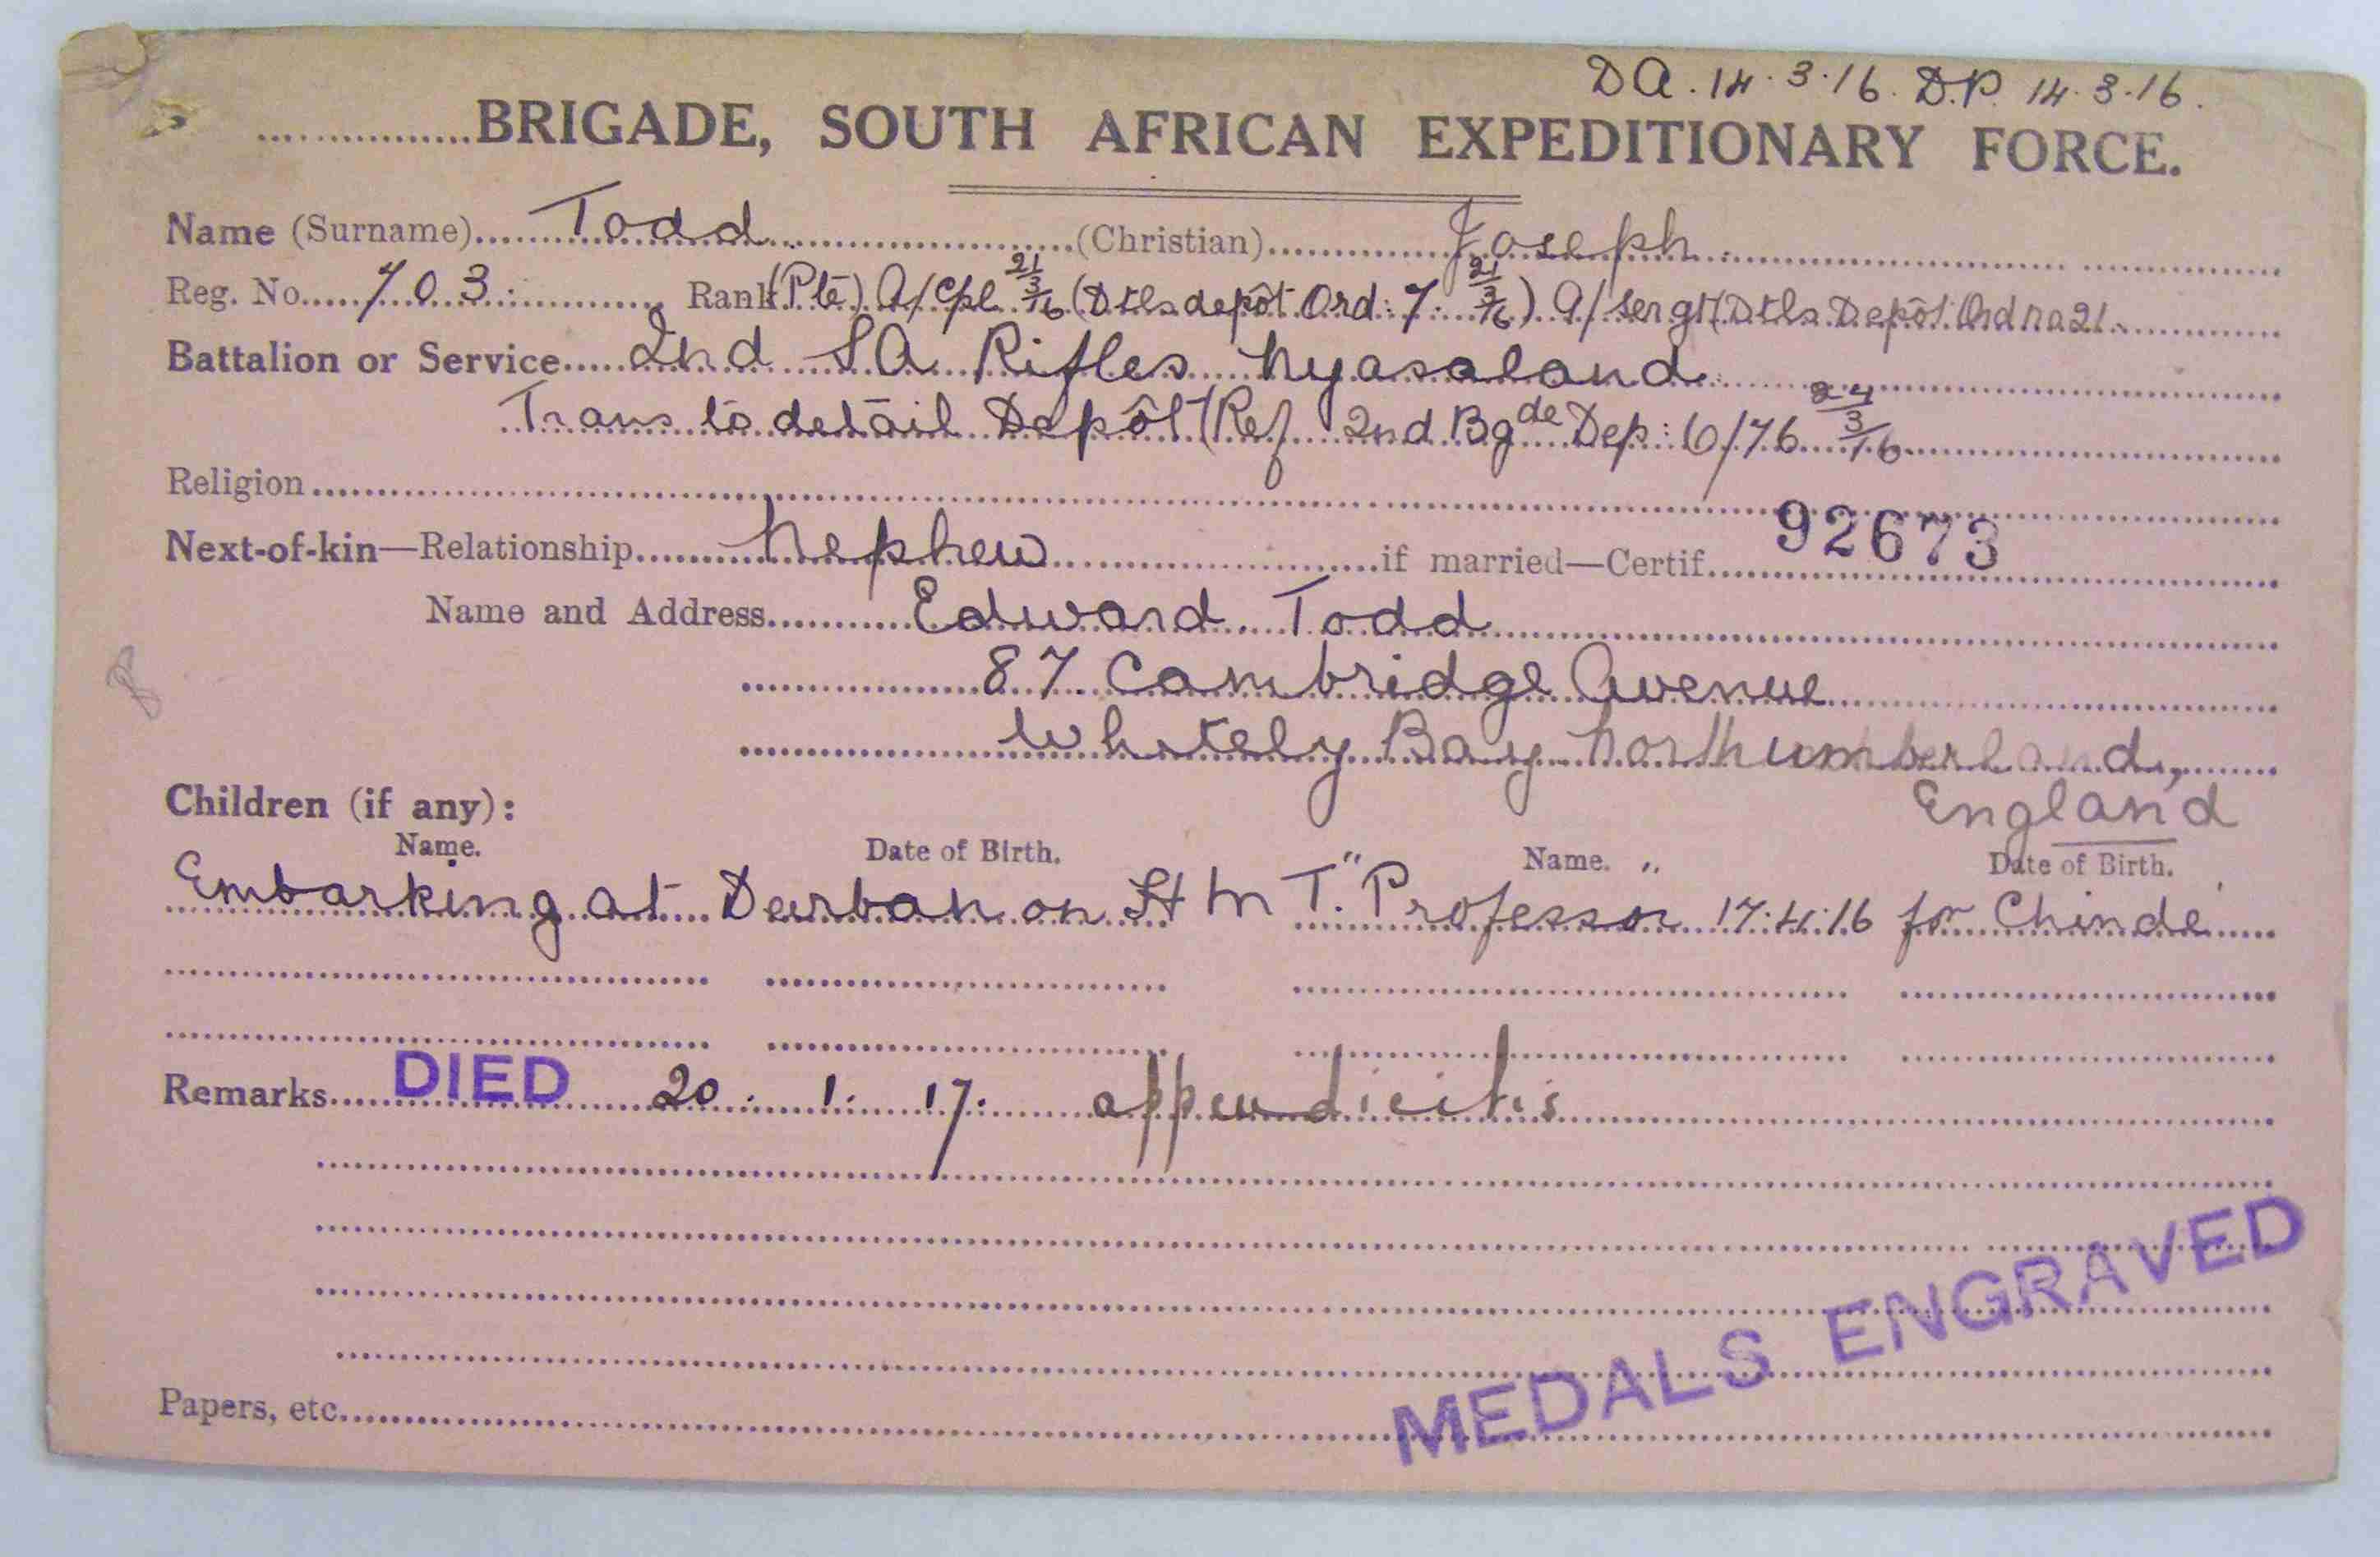 D A . 14 . 3 . 16 . D.P. 14 . 3 . 16 .
BRIGADE, SOUTH AFRICAN EXPEDITIONARY FORCE.
Name (Surname) Todd (Christian) Joseph
Reg. No. 703. Rank (Pte) A/Cpl 21/3/16 (Dtls depôt Ord: 7. 21/3/16) A/Sergt (Dtls Depôt Ord no 21
Battalion or Service 2nd S A Rifles Nyasaland
Trans to detail Depôt (Ref 2nd Bgde Dep: 6/76 24/3/16
Religion
92673
Next-of-kin—Relationship Nephew if married—Certif.
Name and Address Edward Todd
87 Cambridge Avenue
Whitely Bay Northumberland,
England
Children (if any):
Name. Date of Birth. Name. Date of Birth.
Embarking at Durban on H M T. "Professor" 17.4.16 for Chinde
Remarks DIED 20. 1. 17. appendicitis
MEDALS ENGRAVED
Papers, etc.